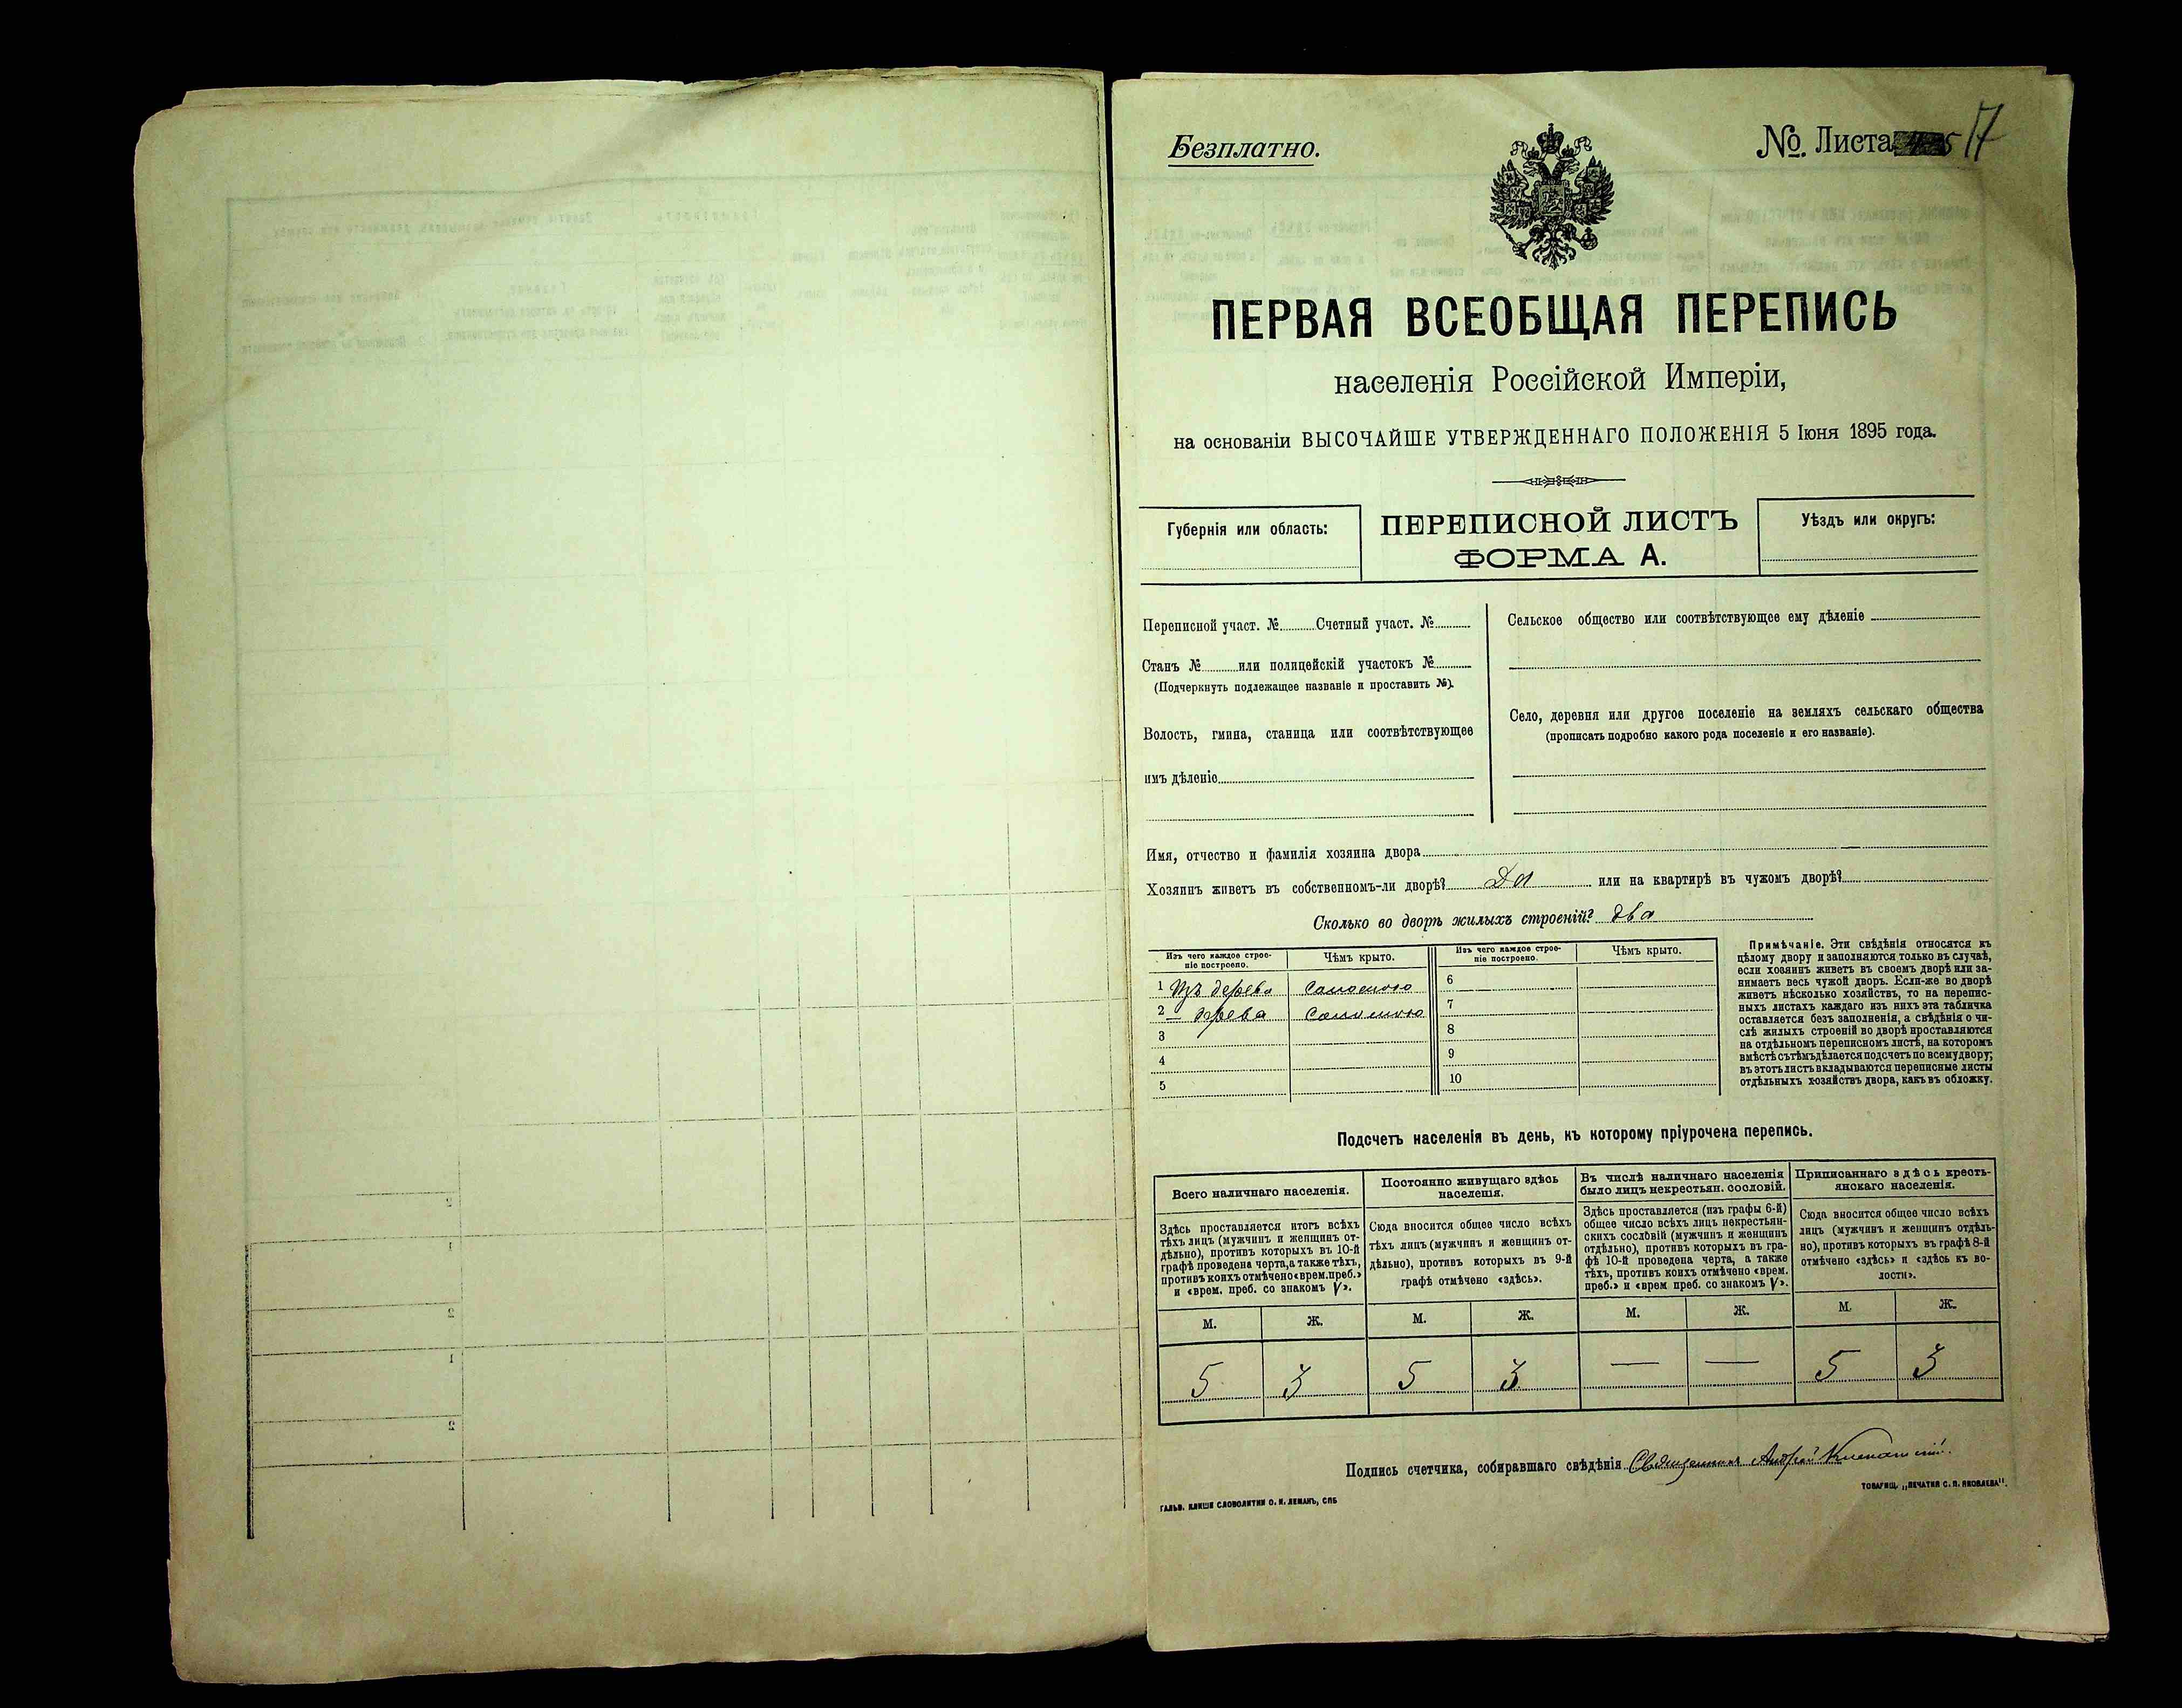 Безплатно.
№. Листа 17
ПЕРВАЯ ВСЕОБЩАЯ ПЕРЕПИСЬ
населенія Россійской Имперіи,
на основаніи ВЫСОЧАЙШЕ УТВЕРЖДЕННАГО ПОЛОЖЕНІЯ 5 Іюня 1895 года.
Губернія или область:
ПЕРЕПИСНОЙ ЛИСТЪ
ФОРМА А.
Уѣздъ или округъ:
Переписной участ. № Счетный участ. №
Станъ № или полицейскій участокъ №
(Подчеркнуть подлежащее названіе и проставить №).
Волость, гмина, станица или соотвѣтствующее
имъ дѣленіе
Сельское общество или соотвѣтствующее ему дѣленіе
Село, деревня или другое поселеніе на земляхъ сельскаго общества
(прописать подробно какого рода поселеніе и его названіе).
Имя, отчество и фамилія хозяина двора
Хозяинъ живетъ въ собственномъ-ли дворѣ? Да или на квартирѣ въ чужомъ дворѣ?
Сколько во дворѣ жилыхъ строеній? два
Изъ чего каждое строе-
ніе построено.
Чѣмъ крыто.
1 Изъ дерева Соломою
2 — древа Соломою
3
4
5
Изъ чего каждое строе-
ніе построено.
Чѣмъ крыто.
6
7
8
9
10
Примѣчаніе. Эти свѣдѣнія относятся къ
цѣлому двору и заполняются только въ случаѣ,
если хозяинъ живетъ въ своемъ дворѣ или за-
нимаетъ весь чужой дворъ. Если-же во дворѣ
живетъ нѣсколько хозяйствъ, то на перепис-
ныхъ листахъ каждаго изъ нихъ эта табличка
оставляется безъ заполненія, а свѣдѣнія о чи-
слѣ жилыхъ строеній во дворѣ проставляются
на отдѣльномъ переписномъ листѣ, на которомъ
вмѣстѣ съ тѣмъ дѣлается подсчетъ по всему двору;
въ этотъ листъ вкладываются переписные листы
отдѣльныхъ хозяйствъ двора, какъ въ обложку.
Подсчетъ населенія въ день, къ которому пріурочена перепись.
Всего наличнаго населенія.
Здѣсь проставляется итогъ всѣхъ
тѣхъ лицъ (мужчинъ и женщинъ от-
дѣльно), противъ которыхъ въ 10-й
графѣ проведена черта, а также тѣхъ,
противъ коихъ отмѣчено «врем. преб.»
и «врем. преб. со знакомъ V».
Постоянно живущаго здѣсь
населенія.
Сюда вносится общее число всѣхъ
тѣхъ лицъ (мужчинъ и женщинъ от-
дѣльно), противъ которыхъ въ 9-й
графѣ отмѣчено «здѣсь».
Въ числѣ наличнаго населенія
было лицъ некрестьян. сословій.
Здѣсь проставляется (изъ графы 6-й)
общее число всѣхъ лицъ некрестьян-
скихъ сословій (мужчинъ и женщинъ
отдѣльно), противъ которыхъ въ гра-
фѣ 10-й проведена черта, а также
тѣхъ, противъ коихъ отмѣчено «врем.
преб.» и «врем преб. со знакомъ V».
Приписаннаго здѣсь кресть-
янскаго населенія.
Сюда вносится общее число всѣхъ
лицъ (мужчинъ и женщинъ отдѣль-
но), противъ которыхъ въ графѣ 8-й
отмѣчено «здѣсь» и «здѣсь къ во-
лости».
М. Ж. М. Ж. М. Ж. М. Ж.
5 3 5 3 — — 5 3
Подпись счетчика, собиравшаго свѣдѣнія Священникъ Андрей
ГАЛЬВ. КЛИШЕ СЛОВОЛИТНИ О. И. ЛЕМАНЪ, СПБ
ТОВАРИЩ. „ПЕЧАТНЯ С. П. ЯКОВЛЕВА".